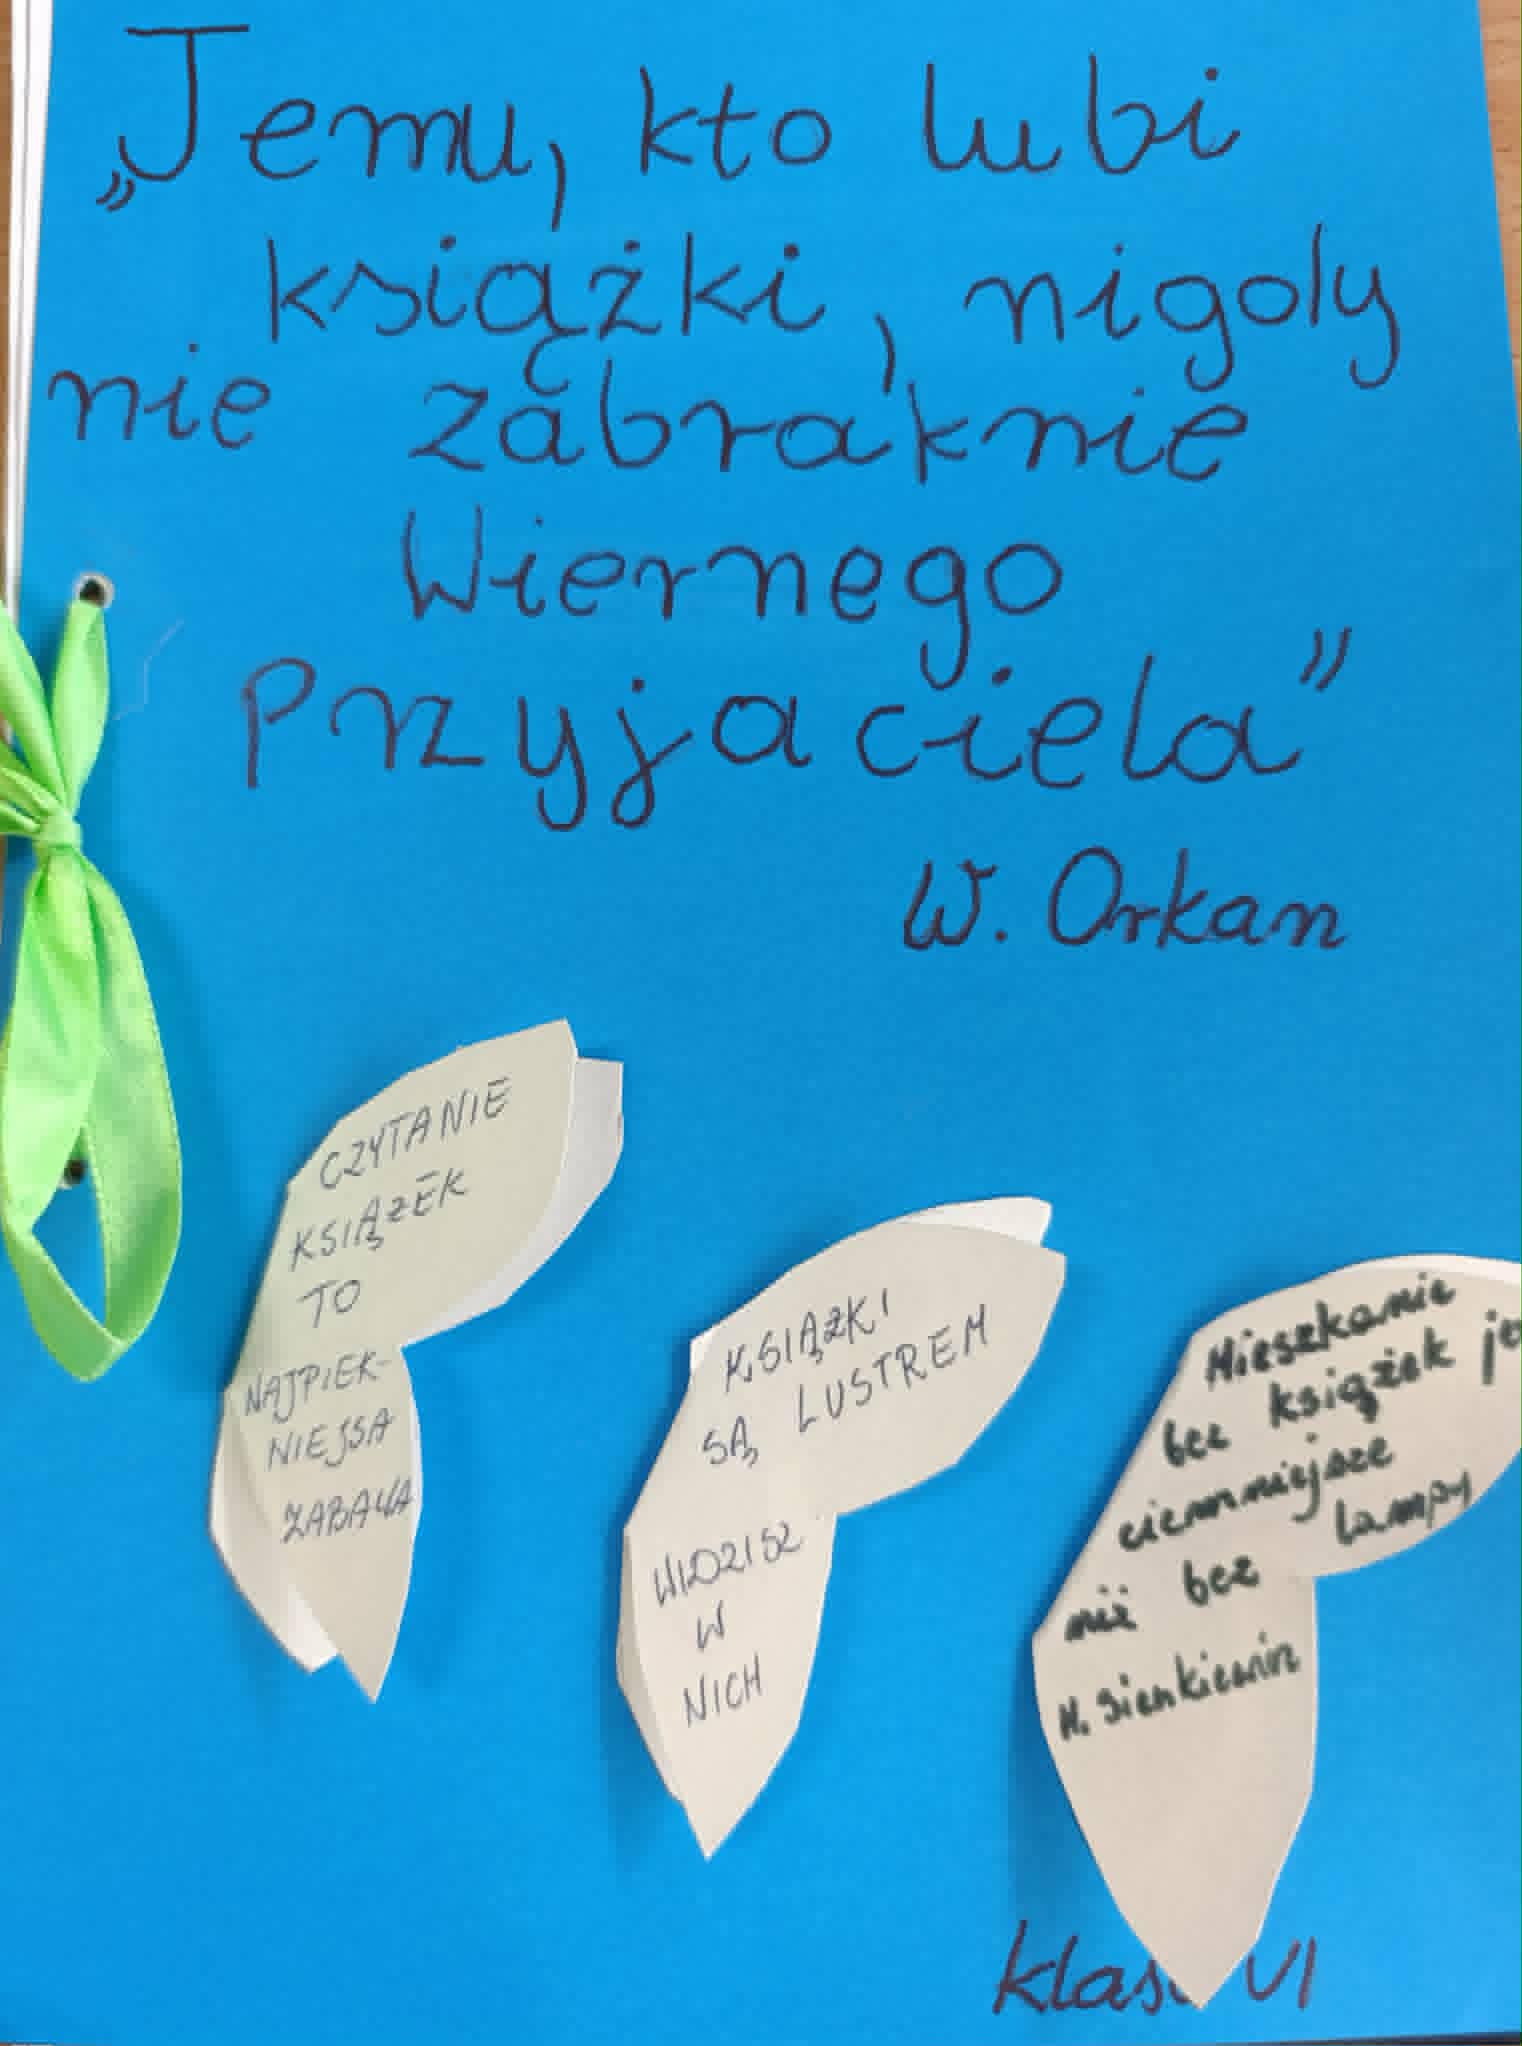 „Jemu, kto lubi
książki, nigdy
nie zabraknie
Wiernego
Przyjaciela”
W. Orkan
CZYTANIE
KSIĄŻEK
TO
NAJPIEK-
NIEJSA
ZABAWA
KSIĄŻKI
SĄ LUSTREM
WIDZISZ
W
NICH
Mieszkanie
bez książek je
ciemniejsze
niż bez lampy
H. Sienkiewicz
klas VI